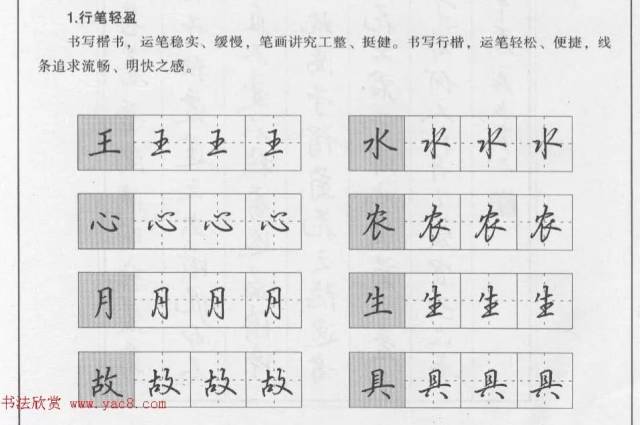 1.行笔轻盈
书写楷书，运笔稳实、缓慢，笔画讲究工整、挺健。书写行楷，运笔轻松、便捷，线
条追求流畅、明快之感。
王 王 王 王 水 水 水 水
心 心 心 心 农 农 农 农
月 月 月 月 生 生 生 生
故 故 故 故 具 具 具 具
书法欣赏 www.yac8.com